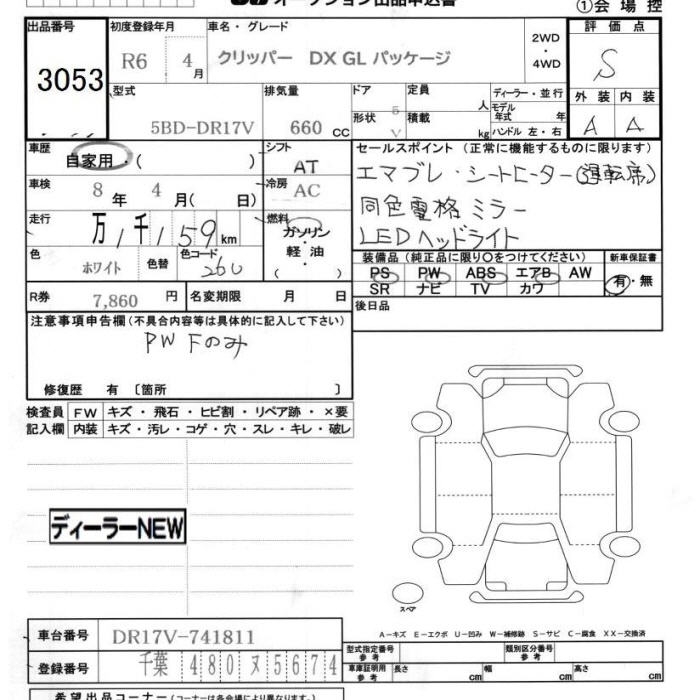 オークション出品申込書
①会場控
出品番号 初度登録年月 車名・グレード 評価点
3053 R6 4月 クリッパー DX GL パッケージ 2WD・4WD S
型式 排気量 ドア 定員 ディーラー・並行 外装 内装
5BD-DR17V 660 CC 5 人 モデル年式 年 A A
形状 V 積載 kg ハンドル 左・右
車歴 シフト セールスポイント (正常に機能するものに限ります)
自家用・( ) AT エマブレ・シートヒーター(運転席)
車検 冷房 同色電格ミラー
8年 4月( 日) AC LEDヘッドライト
走行 燃料
万 1千159km ガソリン・軽油・( )
色 色替 色コード 装備品 (純正品に限り○をつけてください) 新車保証書
ホワイト 26U PS PW ABS エアB AW 有・無
SR ナビ TV カワ
R券 7,860円 名変期限 月 日 後日品
注意事項申告欄(不具合内容等は具体的に記入して下さい)
PW Fのみ
修復歴 有 〔箇所 〕
検査員 FW キズ・飛石・ヒビ割・リペア跡・×要
記入欄 内装 キズ・汚レ・コゲ・穴・スレ・キレ・破レ
ディーラーNEW
スペア
A-キズ E-エクボ U-凹み W-補修跡 S-サビ C-腐食 XX-交換済
車台番号 DR17V-741811
型式指定番号 参考 類別区分番号 参考
登録番号 千葉 480 ヌ 5674
車庫証明用 参考 長さ cm 幅 cm 高さ cm
希望出品コーナー(コーナーは各会場により異なります)